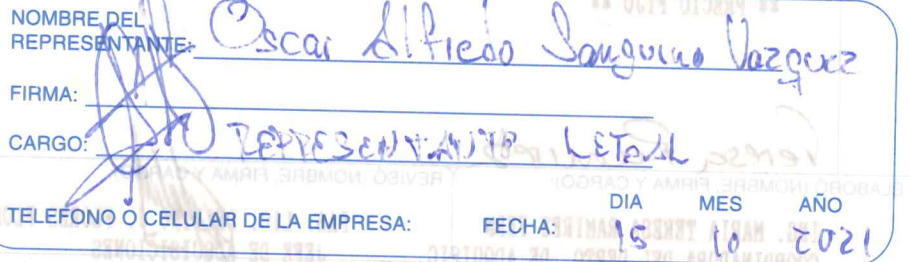 NOMBRE DEL
REPRESENTANTE: Oscar Alfredo Sanguino Vazquez
FIRMA:
CARGO: REPRESENTANTE LEGAL
TELEFONO O CELULAR DE LA EMPRESA: FECHA: DIA MES AÑO
15 10 2021